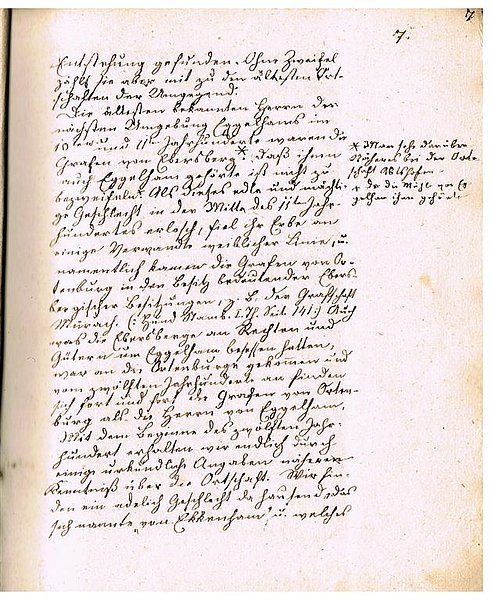 7
7.
Entstehung gefunden. Ohne Zweifel
zählt sie aber mit zu den ältesten Ort-
schaften der Umgegend.
Die ältesten bekannten Herrn der
nächsten Umgebung Eggelhams im
10ten und 11ten Jahrhunderte waren die
Grafen von Ebersberg; daß ihnen
auch Eggelham gehörte ist nicht zu
bezweifeln. Als dieses edle und mächti-
ge Geschlecht in der Mitte des 11ten Jahr-
hundertes erlosch, fiel ihr Erbe an
einige Verwandte weiblicher Linie, u.
namentlich kamen die Grafen von Or-
tenburg in den Besitz bedeutender Ebers-
bergischer Besitzungen, z. B. der Grafschaft
Murach. (: Hund Stamb. I. Th. Seit. 141:) Auch
was die Ebersberge an Rechten und
Gütern um Eggelham besessen hatten,
war an die Ortenburge gekommen und
vom zwölften Jahrhunderte an finden
sich fort und fort die Grafen von Orten-
burg als die Herrn von Eggelham.
Mit dem Beginne des zwölften Jahr-
hundert erhalten wir endlich durch
einige urkundliche Angaben nähere
Kenntniß über die Ortschaft. Wir fin-
den ein adelich Geschlecht da hausend, das
sich nannte „von Ekkenham" u. welches
x Man sehe darüber
Näheres bei der Orts-
x Da die Mühle zu Eg
gelham ihnen gehört